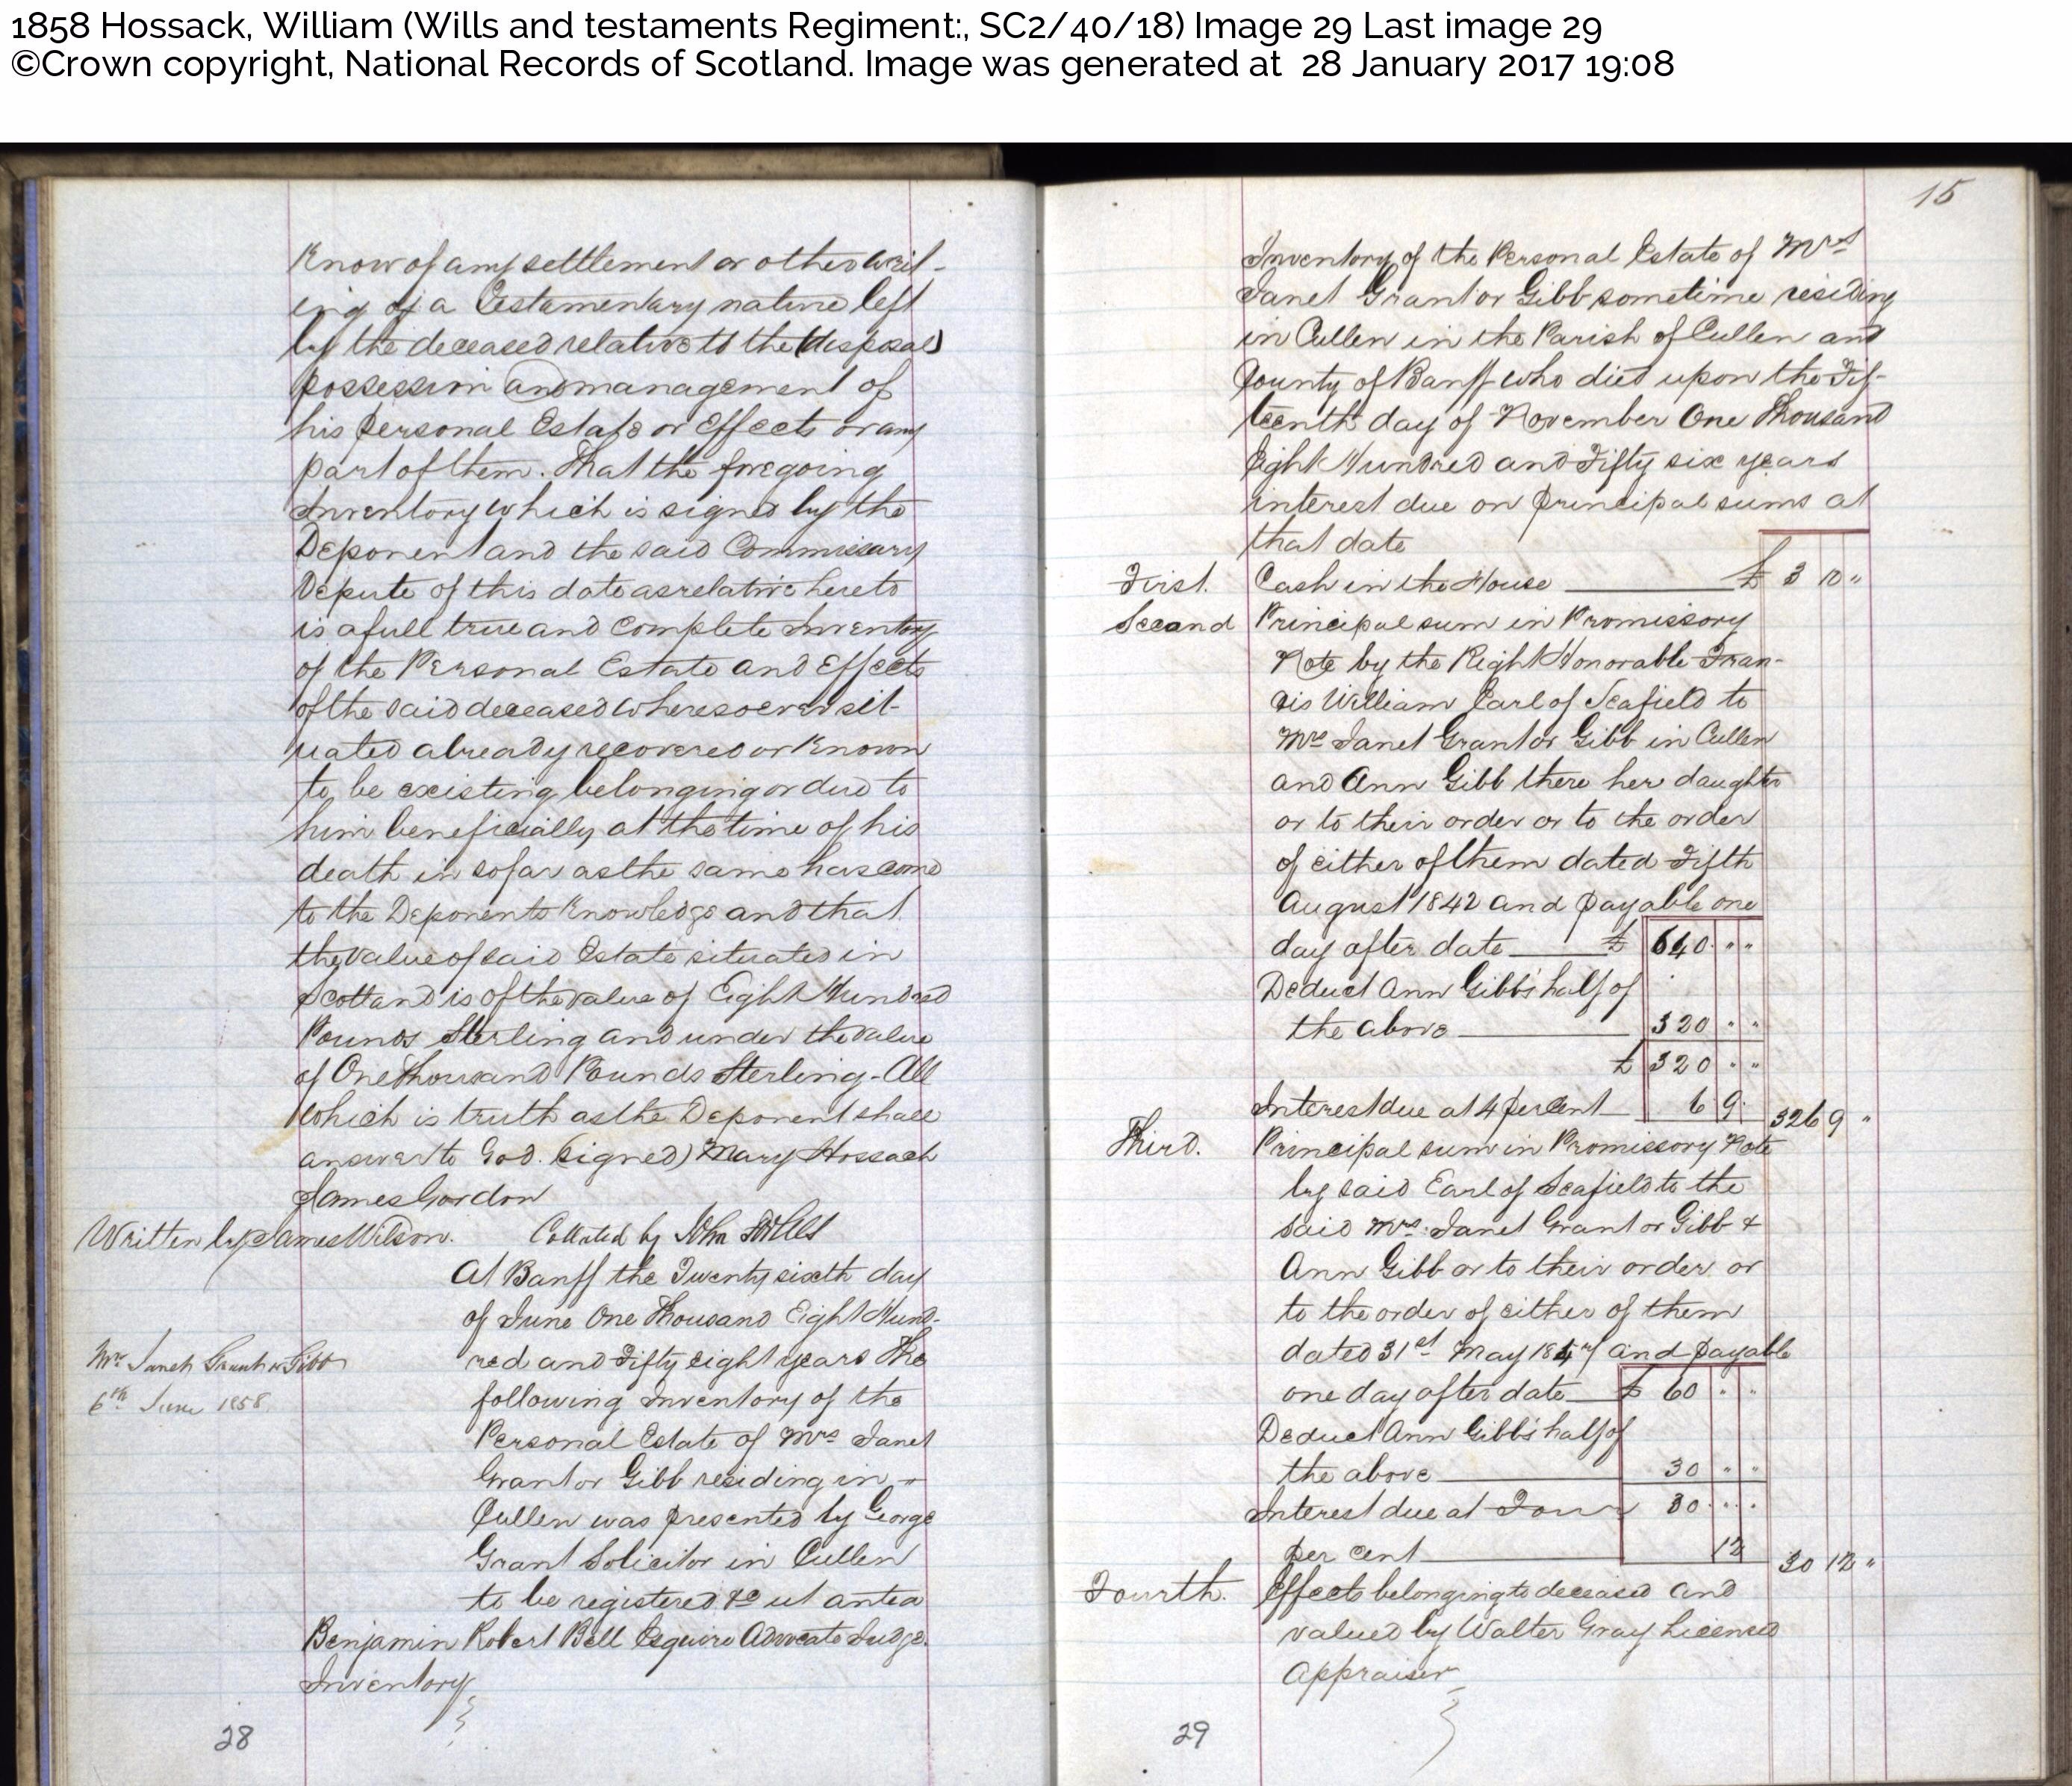 1858 Hossack, William (Wills and testaments Regiment:, SC2/40/18) Image 29 Last image 29
©Crown copyright, National Records of Scotland. Image was generated at 28 January 2017 19:08
Know of any settlement or other writ-
ing of a Testamentary nature left
by the deceased relative to the disposal
possession and management of
his personal Estate or Effects or any
part of them. That the foregoing
Inventory which is signed by the
Deponent and the said Commissary
Depute of this date as relative hereto
is a full true and complete Inventory
of the Personal Estate and Effects
of the said deceased wheresoever sit-
uated already recovered or Known
to be existing belonging or due to
him beneficially at the time of his
death in so far as the same has come
to the Deponents Knowledge and that
the value of said Estate situated in
Scotland is of the value of Eight Hundred
Pounds Sterling and under the value
of One Thousand Pounds Sterling - All
which is truth as the Deponent shall
answer to God. (signed) Mary Hossack
James Gordon
Written by James Wilson. Collated by John
At Banff the Twenty sixth day
of June One Thousand Eight Hund-
Mrs Janet Grant or Gibb
red and Fifty eight years The
6th June 1858.
following Inventory of the
Personal Estate of Mrs Janet
Grant or Gibb residing in
Cullen was presented by George
Grant Solicitor in Cullen
to be registered &c ut antea
Benjamin Robert Bell Esquire Advocate Judge.
Inventory
28
15
Inventory of the Personal Estate of Mrs
Janet Grant or Gibb sometime residing
in Cullen in the Parish of Cullen and
County of Banff who died upon the Fif-
teenth day of November One Thousand
Eight Hundred and Fifty six years
interest due on principal sums at
that date
First. Cash in the House £ 3 10 "
Second Principal sum in Promissory
Note by the Right Honorable Fran-
cis William Earl of Seafield to
Mrs Janet Grant or Gibb in Cullen
and Ann Gibb there her daughter
or to their order or to the order
of either of them dated Fifth
August 1842 and payable one
day after date £ 640 " "
Deduct Ann Gibb's half of
the above 320 " "
£ 320 " "
Interest due at 4 per Cent 6 9 326 9 "
Third. Principal sum in Promissory Note
by said Earl of Seafield to the
said Mrs. Janet Grant or Gibb &
Ann Gibb or to their order or
to the order of either of them
dated 31st May and payable
one day after date £ 60 " "
Deduct Ann Gibb's half of
the above 30 " "
Interest due at Four 30 " "
per cent 12 30 12 "
Fourth. Effects belonging to deceased and
valued by Walter Gray Licensed
Appraiser
29